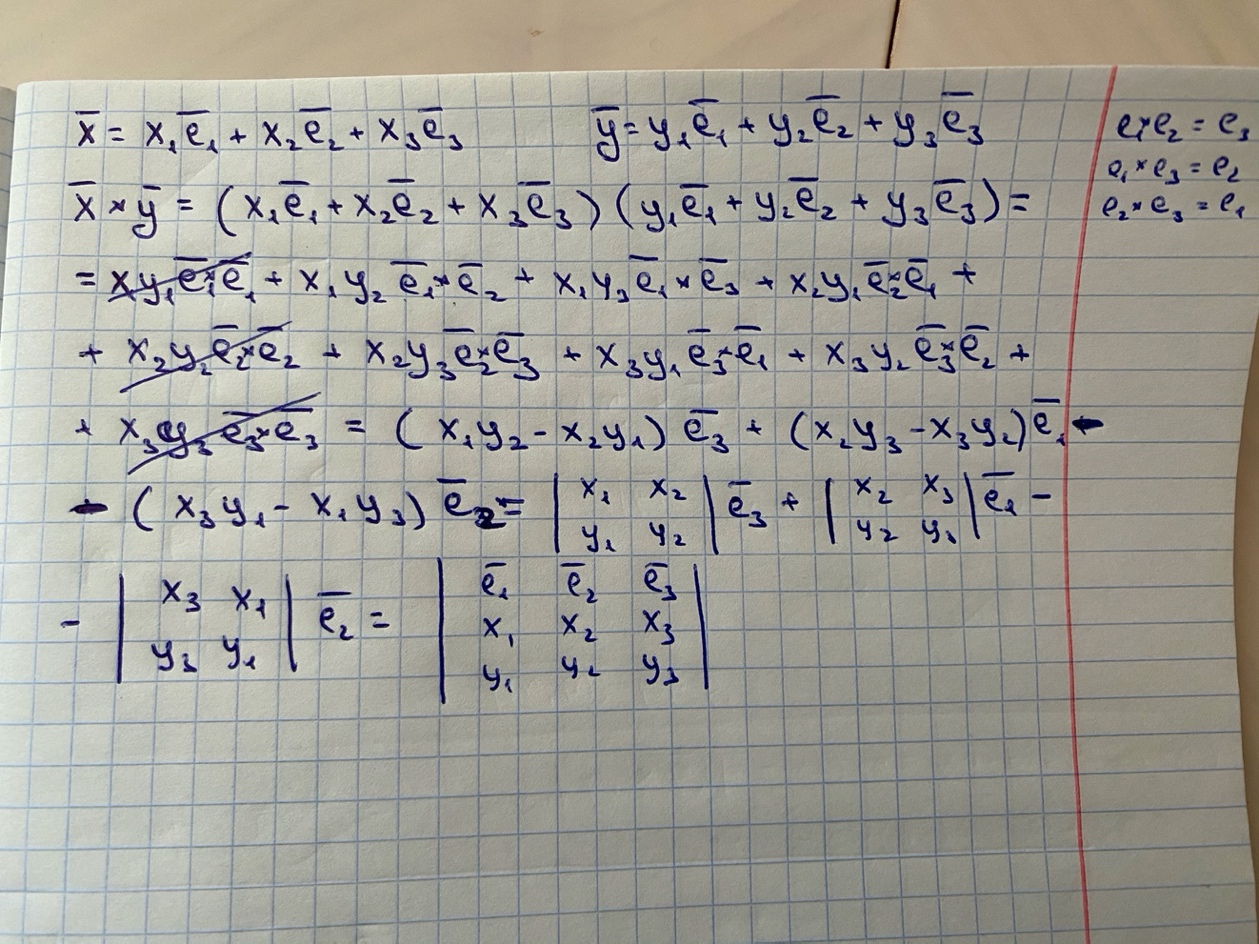 x̅ = x₁e̅₁ + x₂e̅₂ + x₃e̅₃ y̅ = y₁e̅₁ + y₂e̅₂ + y₃e̅₃
e₁×e₂ = e₃
e₁×e₃ = e₂
e₂×e₃ = e₁
x̅ × y̅ = (x₁e̅₁ + x₂e̅₂ + x₃e̅₃)(y₁e̅₁ + y₂e̅₂ + y₃e̅₃) =
= xy₁e̅₁×e̅₁ + x₁y₂ e̅₁×e̅₂ + x₁y₃e̅₁×e̅₃ + x₂y₁e̅₂×e̅₁ +
+ x₂y₂e̅₂×e̅₂ + x₂y₃e̅₂×e̅₃ + x₃y₁e̅₃×e̅₁ + x₃y₂e̅₃×e̅₂ +
+ x₃y₃e̅₃×e̅₃ = (x₁y₂ - x₂y₁) e̅₃ + (x₂y₃ - x₃y₂)e̅₁ -
- (x₃y₁ - x₁y₃) e̅₂ = | x₁ x₂ | e̅₃ + | x₂ x₃ | e̅₁ -
| y₁ y₂ | | y₂ y₃ |
- | x₃ x₁ | e̅₂ = | e̅₁ e̅₂ e̅₃ |
| y₃ y₁ | | x₁ x₂ x₃ |
| y₁ y₂ y₃ |